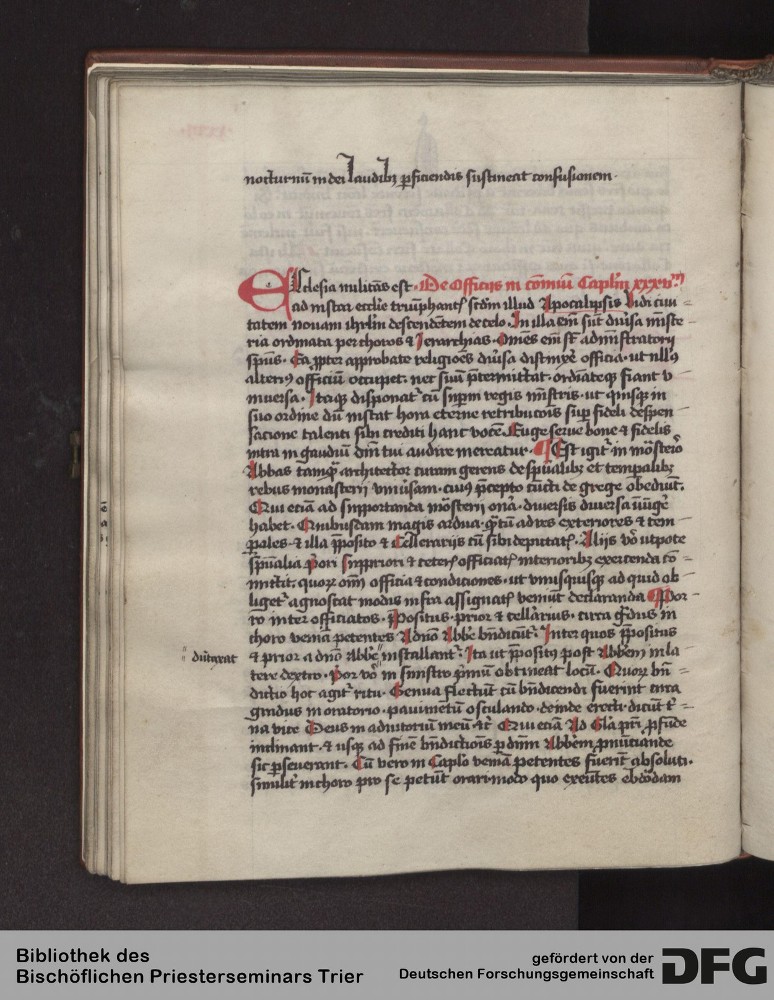 nocturnũ in dei laudibꝫ ꝑficiendis sustineat confusionem.
Ecclesia militãs est. De Officijs in cõmuni Caplm xxxvm
ad instar ecclie triũphantꝭ scdm illud Apocalipsis Vidi ciui
tatem nouam ihrlm descendẽtem de celo. In illa em̃ sũt diu͛sa mĩste
ria ordinata per choros & Ierarchias. Om̃es em̃ st̃ admĩstratorij
sp̃us. Ea ꝓpter approbate religiões diu͛sa distinxẽ officia. ut null9
alteri9 officiũ occupet. nec suũ p̃termittat. ordĩateqꝫ fiant v
niuersa. Itaqꝫ disponat͛ cũ sup̃mi regis mĩstris. ut quisqꝫ in
suo ordine dũ instat hora eterne retribucõis sup͛ fideli despen
sacione talenti sibi crediti hanc vocẽ. Euge serue bone & fidelis
intra in gaudiũ dñi tui audire mereatur. Est igit͛ in mõsterio
Abbas tamqꝫ architector curam gerens de sp̃ualibꝫ et tempalibꝫ
rebus monasterij vniu͛sam. cui9 p̃cepto cũcti de grege obediũt.
Qui eciam ad supportanda mõsterij on͛a. diuersis diuersa iniũge͛
habet. Quibusdam magis ardua. qͣtũ ad res exteriores & tem
ꝑales. & illa p̃posito & Cellerarijs cũ sibi deputatꝭ. Alijs vo͛ utpote
sp̃ualia p̃ori suppriori & ceterꝭ officiatꝭ interioribꝫ exercenda cõ
mittit. quorꝫ om̃i officia & condiciones. ut vnusquisqꝫ ad quid ob
liget͛ agnoscat modus infra assignatꝭ veniũt declaranda Por
ro inter officiatos. P̃positus. prior & cellarius. circa gͣdus in
choro veniã petentes A dño Abbe bñdicũt͛. Inter quos p̃positus
& prior a dño Abbe installant͛. Ita ut p̃posit9 post Abbem in la
dũtaxat
tere dextro. P̃or vo͛ in sinistro p̃mũ obtineat locũ. Quorꝫ bñ
dictio hoc agit͛ ritu. Genua flectũt cũ bñdicendi fuerint circa
gradus in oratorio. pauimẽtũ osculando. deinde erecti. dicũt t͛
na vice Deus in adiutoriũ meũ. &c͛ Qui eciã Ad Gl̃a pri. ꝓfũde
inclinant. & usqꝫ ad finẽ bñdictiõis ꝑ dñm Abbem ꝓnũciande
sic ꝑseuerant. Cũ vero in Caplo veniã petentes fuerĩt absoluti.
similit͛ in choro pro se petũt orari modo quo exeũtes ebdõdam
Bibliothek des
Bischöflichen Priesterseminars Trier
gefördert von der
Deutschen Forschungsgemeinschaft
DFG